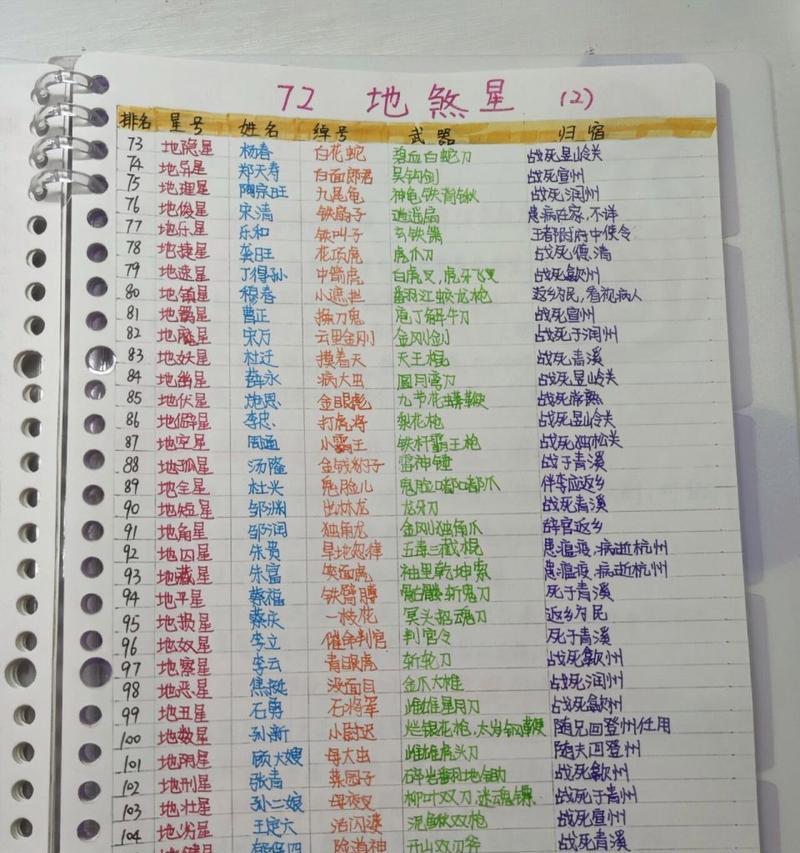 72 地煞星 (2)
排名 星号 姓名 绰号 武器 归宿
73 地隐星 杨春 白花蛇 碧血白蛇刀 战死昱岭关
74 地异星 郑天寿 白面郎君 吴钩剑 战死宣州
75 地理星 陶宗旺 九尾龟 神龟铁背锹 战死润州
76 地俊星 宋清 铁扇子 逍遥扇 患病在家,不详
77 地乐星 乐和 铁叫子 玄铁箫 王都尉府中使令
78 地捷星 龚旺 花项虎 虎爪刀 战死德清
79 地速星 丁得孙 中箭虎 白虎叉,虎牙飞叉 战死歙州
80 地镇星 穆春 小遮拦 翻江蛟龙枪 返乡为民,看视病人
81 地羁星 曹正 操刀鬼 庖丁解牛刀 战死宣州
82 地魔星 宋万 云里金刚 金刚剑 战死于润州
83 地妖星 杜迁 摸着天 天王棍 战死青溪
84 地幽星 薛永 病大虫 圆月弯刀 战死昱岭关
85 地伏星 施恩 金眼彪 九节花鞭 战死常熟
86 地僻星 李忠 打虎将 梨花枪 战死昱岭关
87 地空星 周通 小霸王 铁杆霸王枪 战死独松关
88 地孤星 汤隆 金钱豹子 雷神锤 战于青溪
89 地全星 杜兴 鬼脸儿 鬼脸嘟嘟爪 伴李应返乡
90 地短星 邹渊 出林龙 龙牙刀 战死青溪
91 地角星 邹润 独角龙 金刚独角爪 辞官返乡
92 地囚星 朱贵 旱地忽律 五毒三截棍 患瘟疫,病逝杭州
93 地藏星 朱富 笑面虎 袖里乾坤索 患瘟疫,病逝杭州
94 地平星 蔡福 铁臂膊 骷髅斩鬼刀 死于青溪
95 地损星 蔡庆 一枝花 冥头招魂刀 返乡为民
96 地奴星 李立 催命判官 判官令 死于青溪
97 地察星 李云 青眼虎 斩轮刀 战死歙州
98 地恶星 焦挺 没面目 金爪大椎 战死润州
99 地丑星 石勇 石将军 雌雄星月刀 战死歙州
100 地数星 孙新 小尉迟 烂银花枪,太岁钢鞭 随兄回登州任用
101 地阴星 顾大嫂 母大虫 雌雄虎头刀 随夫回登州
102 地刑星 张青 菜园子 碎岩翻地锄 战死歙州
103 地壮星 孙二娘 母夜叉 柳叶双刀,迷魂镖 战死于青州
104 地劣星 王定六 活闪婆 泥鳅双枪 战死宣州
地健星 郁保四 险道神 开山双刃斧 战死青溪